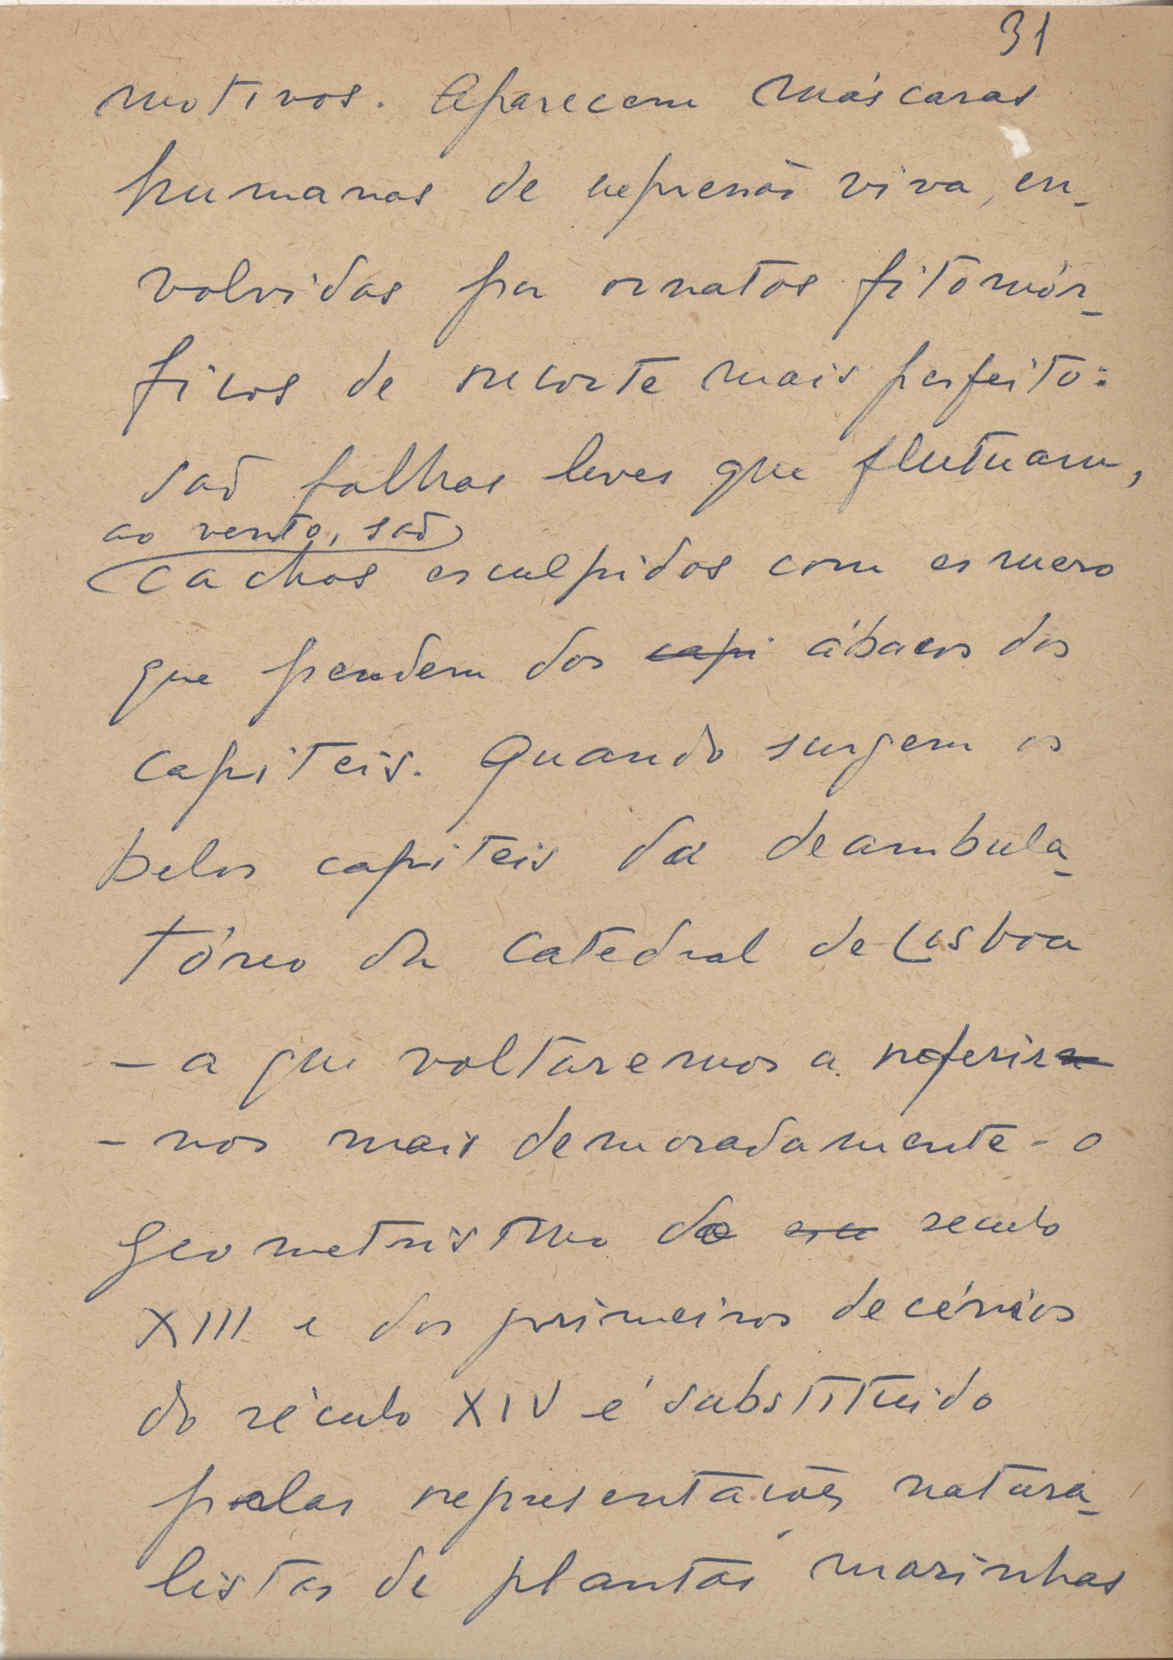 31
motivos. Aparecem máscaras
humanas de expressão viva, en-
volvidas por ornatos fitomór-
ficos de recorte mais perfeito:
são folhas leves que flutuam,
ao vento, são
cachos esculpidos com esmero
que pendem dos capi ábacos dos
capiteis. Quando surgem os
belos capiteis da deambula-
tório da Catedral de Lisboa
- a que voltaremos a referir
- nos mais demoradamente - o
geometrismo do século
XIII e dos primeiros decénios
do século XIV é substituido
pelas representações natura-
listas de plantas marinhas